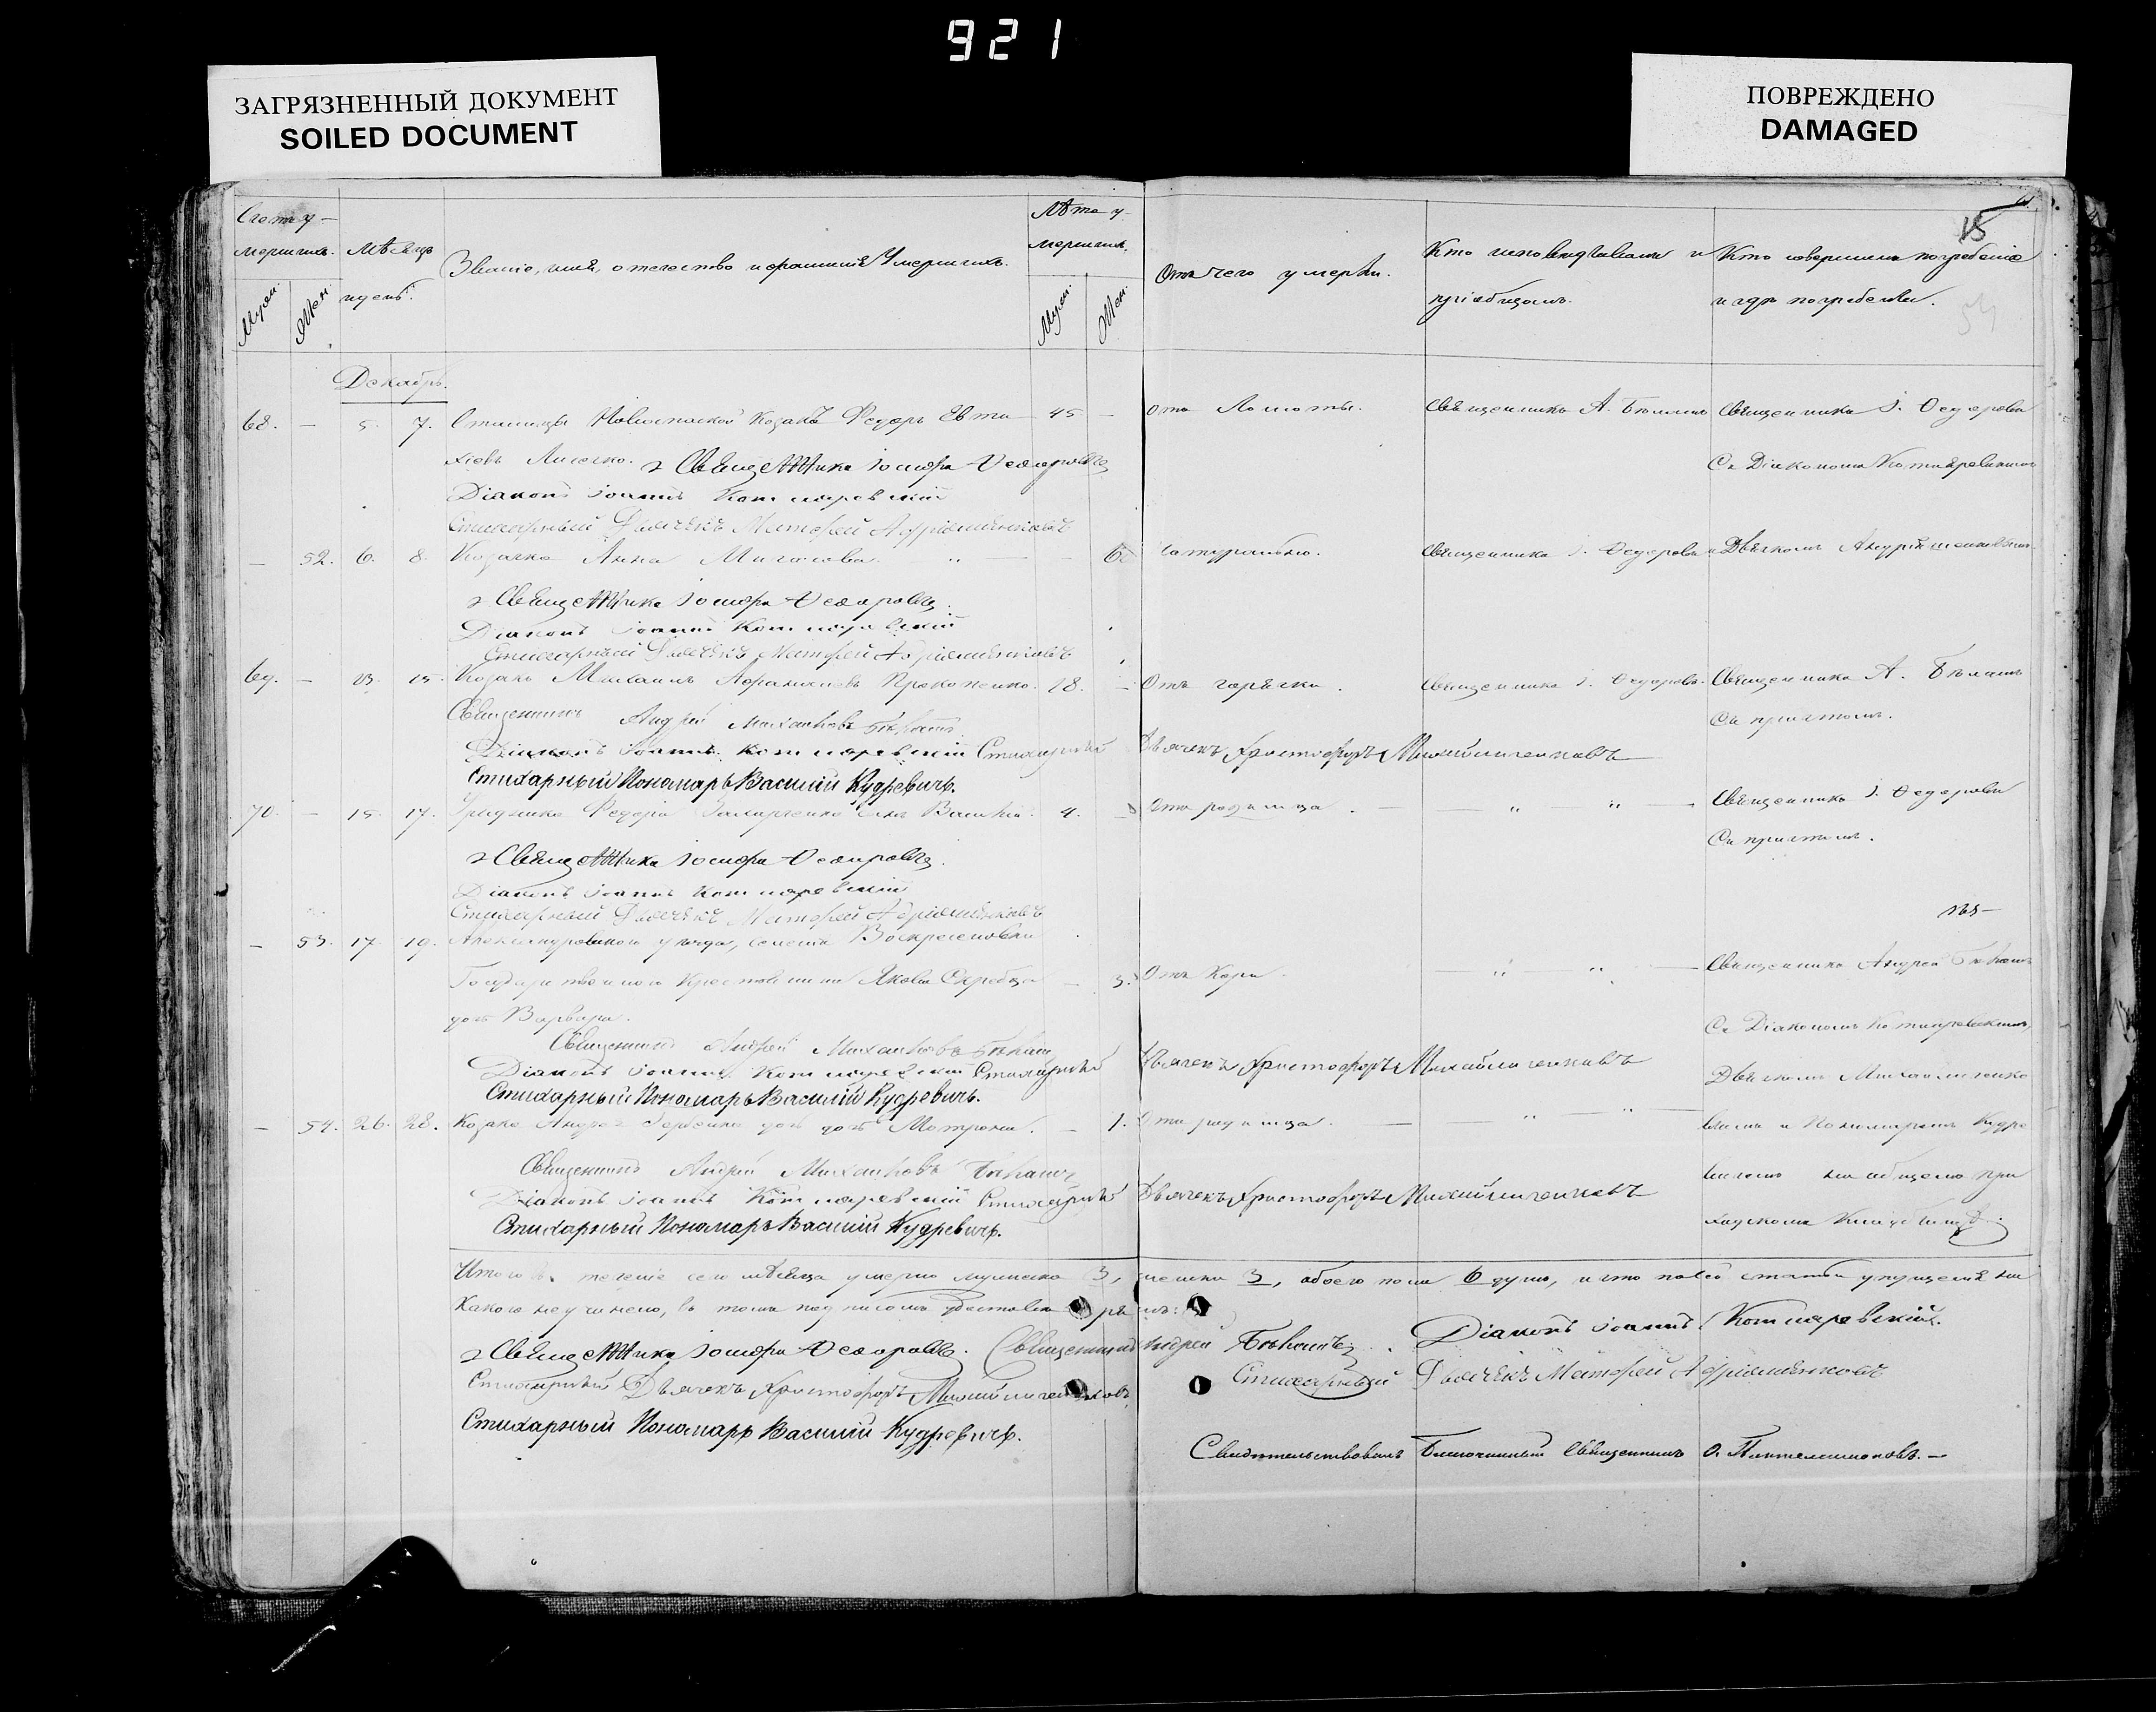 921
ЗАГРЯЗНЕННЫЙ ДОКУМЕНТ
SOILED DOCUMENT
ПОВРЕЖДЕНО
DAMAGED
15
Счетъ у-
мершихъ.
Муж.
Жен.
Мѣсяцъ
и день.
Званіе, имя, отечество и фамилія Умершихъ.
Лѣта у-
мершихъ.
Муж.
Жен.
Отъ чего умерли.
Кто исповѣдывалъ и
пріобщалъ.
Кто совершалъ погребеніе
и гдѣ погребены.
Декабрь.
68. — 5. 7. Станицы Козакъ Федоръ Евти 45 — отъ Ломоты. Священникъ А. Бѣлашъ Священникъ І. Федоровъ
хіевъ Лисечко. Священника Іосифъ Федоровъ
Съ Діакономъ Котляревскимъ
Діаконъ Іоаннъ Котляревскій
Стихарный Дьячекъ Матфей Андріяшенковъ
— 52. 6. 8. Козачка Анна — 6 натурально. Священникъ І. Федоровъ Дьячкомъ Андріяшенковымъ
Священника Іосифъ Федоровъ
Діаконъ Іоаннъ Котляревскій
Стихарный Дьячекъ Матфей Андріяшенковъ
69. — 13. 15. Козакъ Михаилъ Прокопенко. 28. — Отъ горячки. Священникъ І. Федоровъ. Священникъ А. Бѣлашъ
Съ причтомъ.
Священникъ Андрей Михайловъ Бѣлашъ
Діаконъ Іоаннъ Котляревскій Стихарный Дьячекъ Христофоръ Михайличенковъ
Стихарный Пономарь Василій Кудревичъ.
70. — 15. 17. Урядника Федора Захарченко сынъ Василій. 4. — Отъ родимца. — " " — Священникъ І. Федоровъ
Съ причтомъ.
Священника Іосифъ Федоровъ
Діаконъ Іоаннъ Котляревскій
Стихарный Дьячекъ Матфей Андріяшенковъ
— 53. 17. 19. Александровскаго уѣзда, селенія Воскресеновки
Государственнаго Крестьянина Якова дочь — 3. Отъ Кори — " " — Священникъ Андрей Бѣлашъ
дочь Варвара.
Съ Діакономъ Котляревскимъ,
Священникъ Андрей Михайловъ Бѣлашъ
Діаконъ Іоаннъ Котляревскій Стихарный Дьячекъ Христофоръ Михайличенковъ
Дьячкомъ Михайличенко
Стихарный Пономарь Василій Кудревичъ.
— 54. 26. 28. Козака Андрея дочь Матрона. — 1. Отъ родимца. — " " — вымъ и Пономаремъ Кудре
Священникъ Андрей Михайловъ Бѣлашъ
вичемъ на общемъ при
Діаконъ Іоаннъ Котляревскій Стихарный Дьячекъ Христофоръ Михайличенковъ
Стихарный Пономарь Василій Кудревичъ.
ходскомъ Кладбищѣ.
Итого въ теченіе сего мѣсяца умерло мужеска 3, женска 3, обоего пола 6 душъ, и что по сей статьи упущенія ни
какого неучинено, въ томъ подписомъ
Священника Іосифъ Федоровъ. Священникъ Андрей Бѣлашъ. Діаконъ Іоаннъ Котляревскій.
Стихарный Дьячекъ Христофоръ Михайличенковъ Стихарный Дьячекъ Матфей Андріяшенковъ
Стихарный Пономарь Василій Кудревичъ.
Свидѣтельствовалъ Благочинный Священникъ Пантелеимоновъ. —